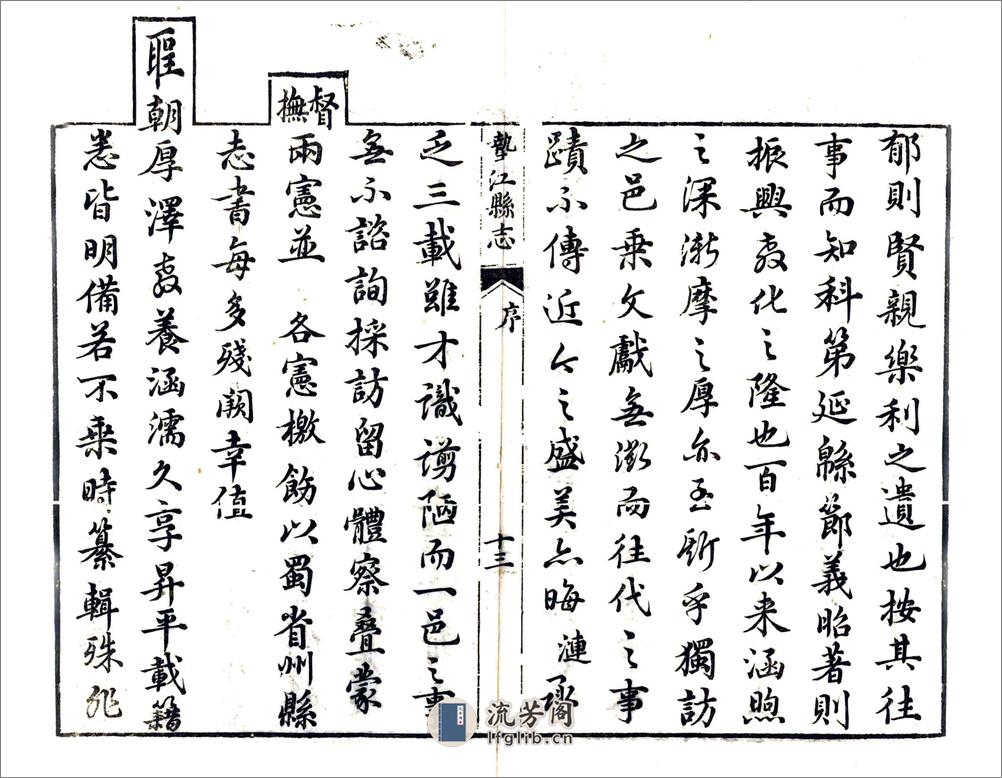 郁則賢親樂利之遺也按其往
事而知科第延綿節義昭著則
振興教化之隆也百年以来涵煦
之深漸摩之厚亦至斯乎獨訪
之邑乗文獻無徵而往代之事
蹟不傳近今之盛美亦晦漣承
墊江縣志
序
十三
乏三載雖才識謭陋而一邑之事
無不諮詢採訪留心體察叠蒙
督撫
兩憲並 各憲檄飭以蜀省州縣
志書每多殘闕幸值
聖朝厚澤教養涵濡久享昇平載籍
悉皆明備若不乗時纂輯殊非
流芳阁
lfglib.cn